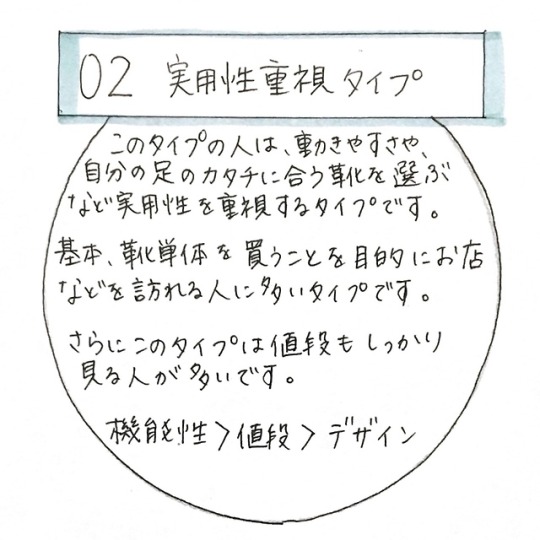 02 実用性重視タイプ
このタイプの人は、動きやすさや、
自分の足のカタチに合う靴を選ぶ
など実用性を重視するタイプです。
基本、靴単体を買うことを目的にお店
などを訪れる人に多いタイプです。
さらにこのタイプは値段もしっかり
見る人が多いです。
機能性>値段>デザイン